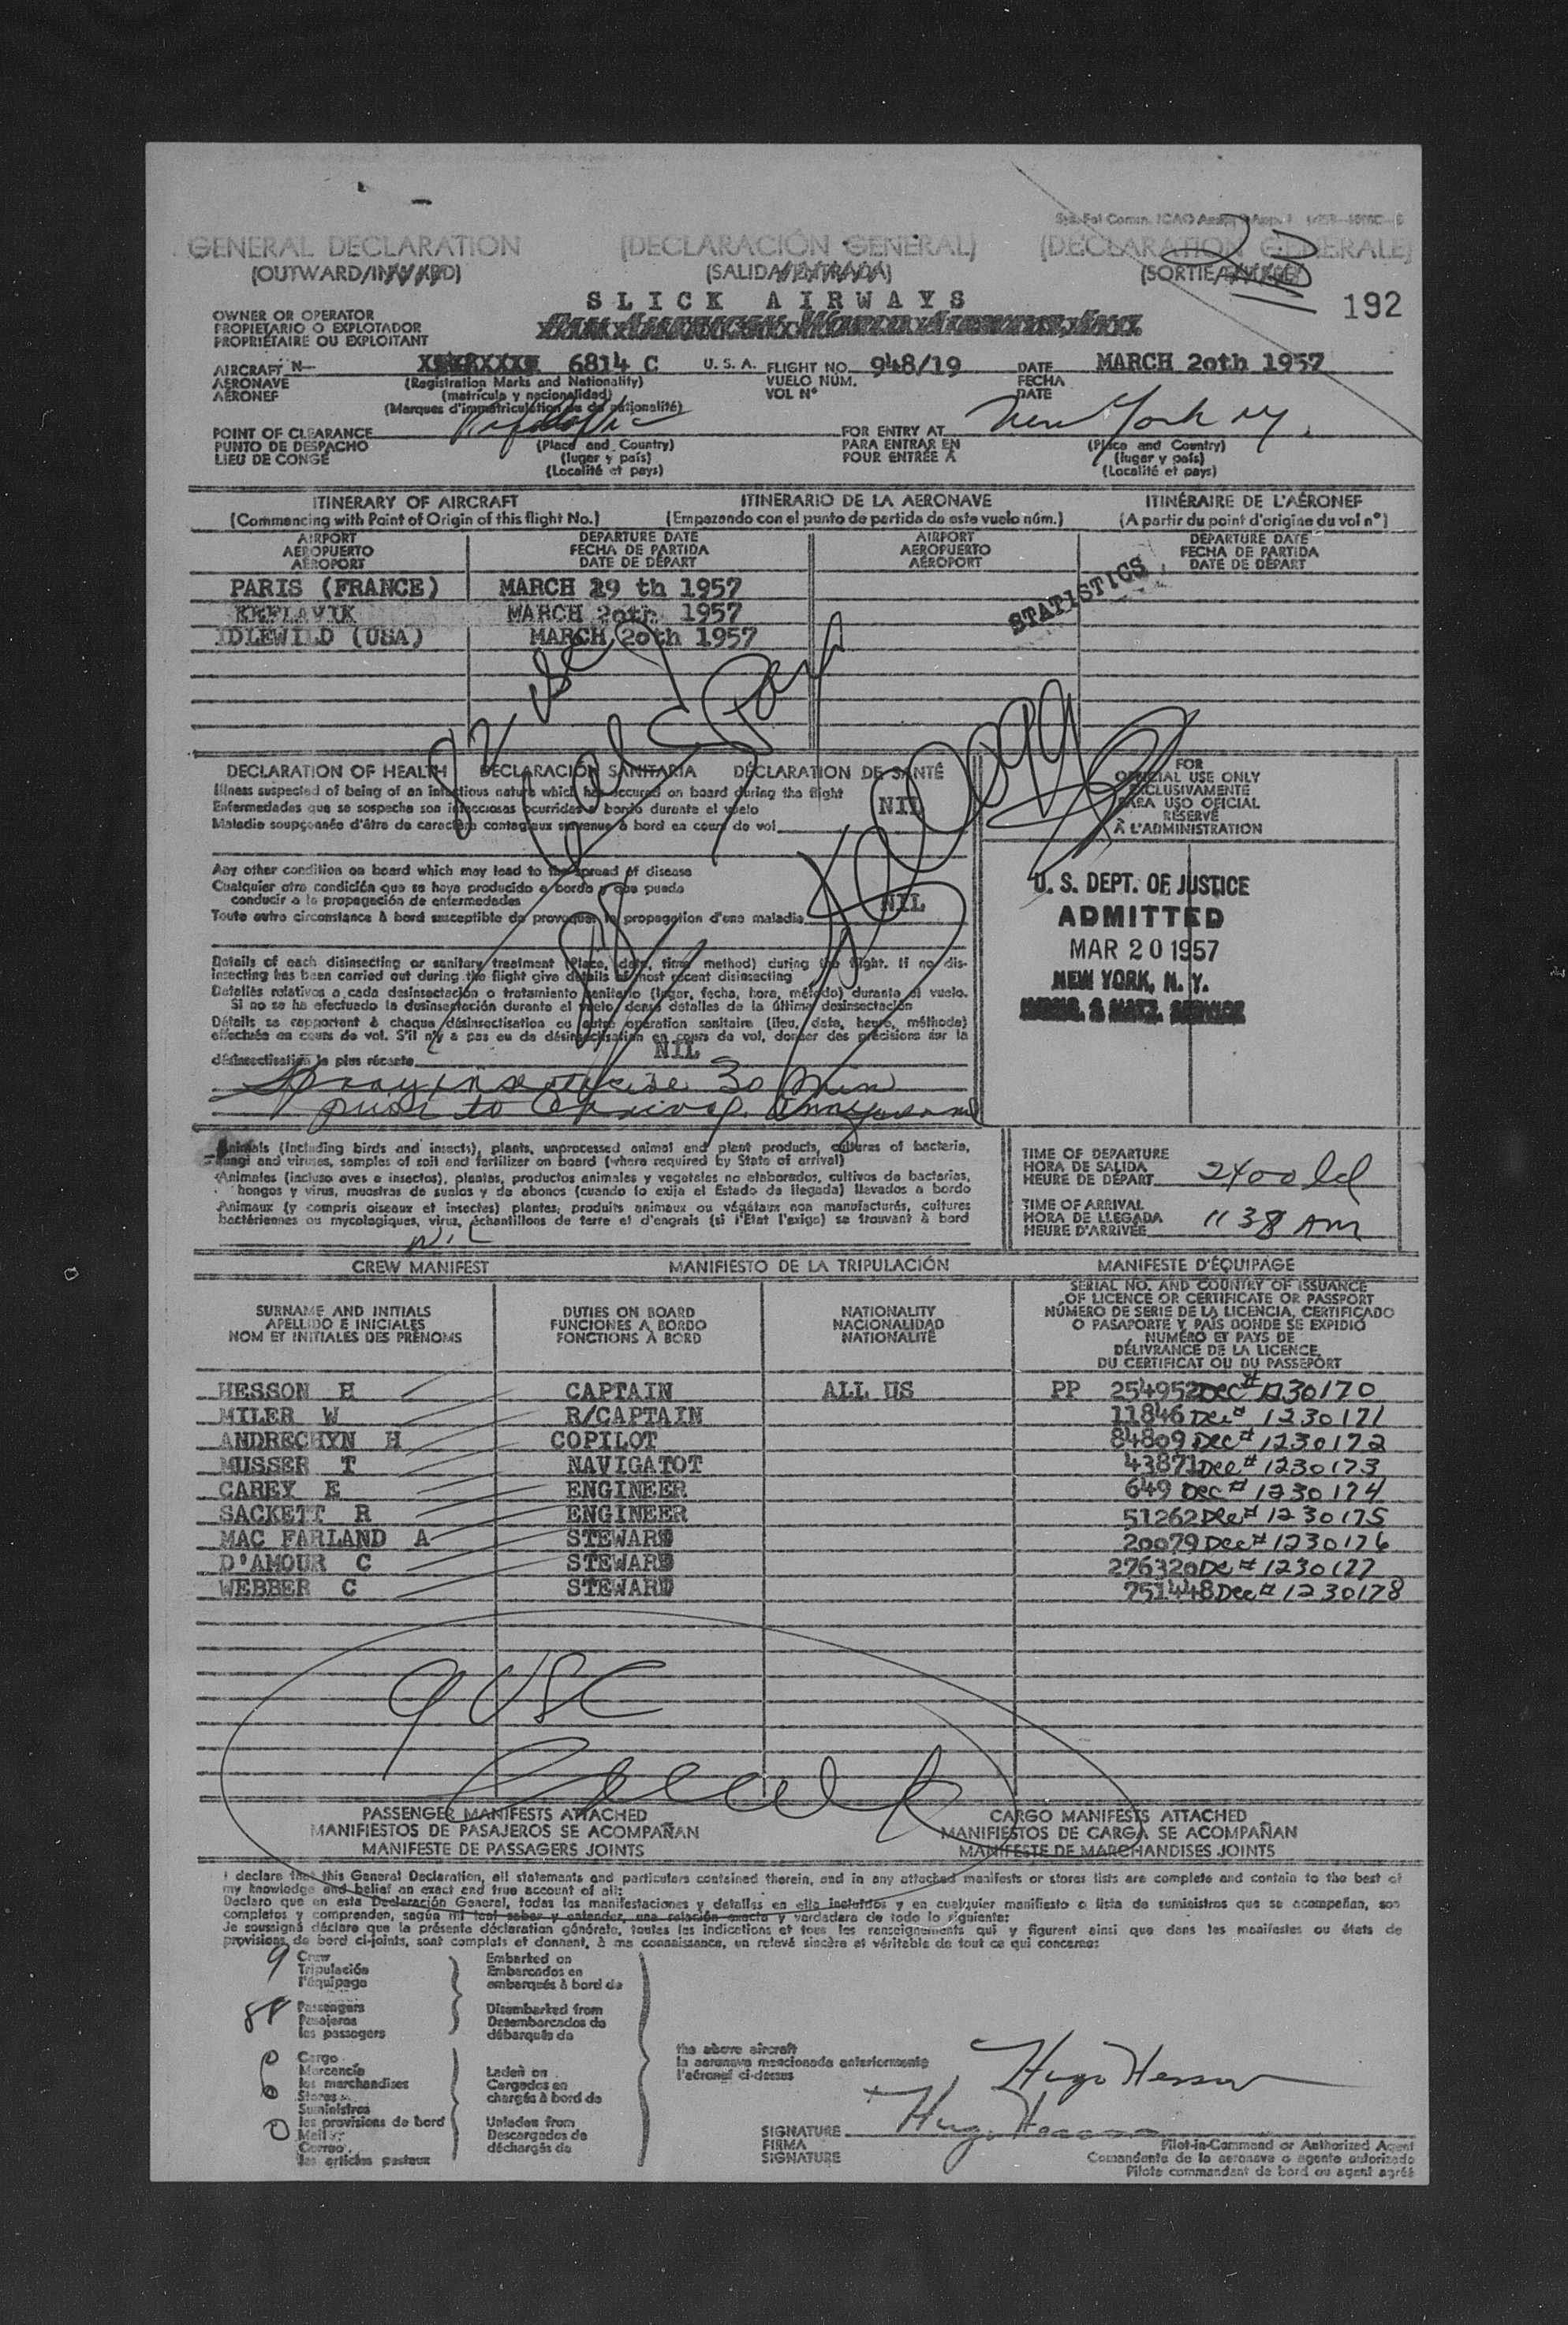 GENERAL DECLARATION (DECLARACIÓN GENERAL) (DECLARATION GENERALE)
(OUTWARD/INWARD) (SALIDA/ENTRADA) (SORTIE/
SLICK AIRWAYS
192
OWNER OR OPERATOR
PROPIETARIO O EXPLOTADOR
PROPRIÉTAIRE OU EXPLOITANT
Pan American World Airways, Inc.
AIRCRAFT N— 6814 C U. S. A. FLIGHT NO. 948/19 DATE MARCH 20th 1957
AERONAVE (Registration Marks and Nationality) VUELO NÚM. FECHA
AÉRONEF (matrícula y nacionalidad) VOL Nº DATE
(Marques d'immatriculation ou de nationalité)
POINT OF CLEARANCE Keflavic FOR ENTRY AT New York NY.
PUNTO DE DESPACHO (Place and Country) PARA ENTRAR EN (Place and Country)
LIEU DE CONGÉ (lugar y país) POUR ENTRÉE À (lugar y país)
(Localité et pays) (Localité et pays)
ITINERARY OF AIRCRAFT ITINERARIO DE LA AERONAVE ITINÉRAIRE DE L'AÉRONEF
(Commencing with Point of Origin of this flight No.) (Empezando con el punto de partida de este vuelo núm.) (A partir du point d'origine du vol nº)
AIRPORT DEPARTURE DATE AIRPORT DEPARTURE DATE
AEROPUERTO FECHA DE PARTIDA AEROPUERTO FECHA DE PARTIDA
AÉROPORT DATE DE DÉPART AÉROPORT DATE DE DÉPART
PARIS (FRANCE) MARCH 19 th 1957
KEFLAVIK MARCH 20th 1957
IDLEWILD (USA) MARCH 20th 1957
STATISTICS
DECLARATION OF HEALTH DECLARACIÓN SANITARIA DÉCLARATION DE SANTÉ
Illness suspected of being of an infectious nature which has occured on board during the flight
Enfermedades que se sospecha son infecciosas ocurridas a bordo durante el vuelo
Maladie soupçonnée d'être de caractère contagieux survenue à bord en cours de vol NIL
FOR
OFFICIAL USE ONLY
EXCLUSIVAMENTE
PARA USO OFICIAL
RÉSERVÉ
À L'ADMINISTRATION
Any other condition on board which may lead to the spread of disease
Cualquier otra condición que se haya producido a bordo y que pueda
conducir a la propagación de enfermedades
Toute autre circonstance à bord susceptible de provoquer la propagation d'une maladie NIL
U. S. DEPT. OF JUSTICE
ADMITTED
MAR 20 1957
NEW YORK, N. Y.
IMMIG. & NATZ. SERVICE
Details of each disinsecting or sanitary treatment (Place, date, time, method) during the flight. If no dis-
insecting has been carried out during the flight give details of most recent disinsecting
Detalles relativos a cada desinsectación o tratamiento sanitario (lugar, fecha, hora, método) durante el vuelo.
Si no se ha efectuado la desinsectación durante el vuelo, dense detalles de la última desinsectación
Détails se rapportant à chaque désinsectisation ou autre opération sanitaire (lieu, date, heure, méthode)
effectuée en cours de vol. S'il n'y a pas eu de désinsectisation en cours de vol, donner des précisions sur la
désinsectisation la plus récente NIL
Spray insecticide 30 min
prior to arrival
Animals (including birds and insects), plants, unprocessed animal and plant products, cultures of bacteria,
fungi and viruses, samples of soil and fertilizer on board (where required by State of arrival)
Animales (incluso aves e insectos), plantas, productos animales y vegetales no elaborados, cultivos de bacterias,
hongos y virus, muestras de suelos y de abonos (cuando lo exija el Estado de llegada) llevados a bordo
Animaux (y compris oiseaux et insectes) plantes, produits animaux ou végétaux non manufacturés, cultures
bactériennes ou mycologiques, virus, échantillons de terre et d'engrais (si l'Etat l'exige) se trouvant à bord
NIL
TIME OF DEPARTURE
HORA DE SALIDA
HEURE DE DÉPART 2400 lcl
TIME OF ARRIVAL
HORA DE LLEGADA
HEURE D'ARRIVÉE 1138 AM
CREW MANIFEST MANIFIESTO DE LA TRIPULACIÓN MANIFESTE D'ÉQUIPAGE
SURNAME AND INITIALS DUTIES ON BOARD NATIONALITY
APELLIDO E INICIALES FUNCIONES A BORDO NACIONALIDAD
NOM ET INITIALES DES PRÉNOMS FONCTIONS À BORD NATIONALITÉ
SERIAL NO. AND COUNTRY OF ISSUANCE
OF LICENCE OR CERTIFICATE OR PASSPORT
NÚMERO DE SERIE DE LA LICENCIA, CERTIFICADO
O PASAPORTE Y PAÍS DONDE SE EXPIDIÓ
NUMÉRO ET PAYS DE
DÉLIVRANCE DE LA LICENCE,
DU CERTIFICAT OU DU PASSEPORT
HESSON H CAPTAIN ALL US PP 254952 Dec # 1230170
MILER W R/CAPTAIN 11846 Dec # 1230171
ANDRECHYN H COPILOT 84809 Dec # 1230172
MUSSER T NAVIGATOT 43871 Dec # 1230173
CAREY E ENGINEER 649 Dec # 1230174
SACKETT R ENGINEER 51262 Dec # 1230175
MAC FARLAND A STEWARD 20079 Dec # 1230176
D'AMOUR C STEWARD 276320 Dec # 1230177
WEBBER C STEWARD 751448 Dec # 1230178
9 USC
PASSENGER MANIFESTS ATTACHED CARGO MANIFESTS ATTACHED
MANIFIESTOS DE PASAJEROS SE ACOMPAÑAN MANIFIESTOS DE CARGA SE ACOMPAÑAN
MANIFESTE DE PASSAGERS JOINTS MANIFESTE DE MARCHANDISES JOINTS
I declare that this General Declaration, all statements and particulars contained therein, and in any attached manifests or stores lists are complete and contain to the best of
my knowledge and belief an exact and true account of all:
Declaro que en esta Declaración General, todas las manifestaciones y detalles en ella incluidos y en cualquier manifiesto o lista de suministros que se acompañan, son
completos y comprenden, según mi leal saber y entender, una relación exacta y verdadera de todo lo siguiente:
Je soussigné déclare que la présente déclaration générale, toutes les indications et tous les renseignements qui y figurent ainsi que dans les manifestes ou états de
provisions de bord ci-joints, sont complets et donnent, à ma connaissance, un relevé sincère et véritable de tout ce qui concerne:
9 Crew Embarked on
Tripulación Embarcados en
l'équipage embarqués à bord de
88 Passengers Disembarked from
Pasajeros Desembarcados de
les passagers débarqués de
0 Cargo Laden on
Mercancía Cargados en
les marchandises chargés à bord de
Stores
Suministros
les provisions de bord Unladen from
0 Mail Descargados de
Correo déchargés de
les articles postaux
the above aircraft
la aeronave mencionada anteriormente
l'aéronef ci-dessus
Hugo Hesson
SIGNATURE Hugo Hesson
FIRMA
SIGNATURE
Pilot-in-Command or Authorized Agent
Comandante de la aeronave o agente autorizado
Pilote commandant de bord ou agent agréé